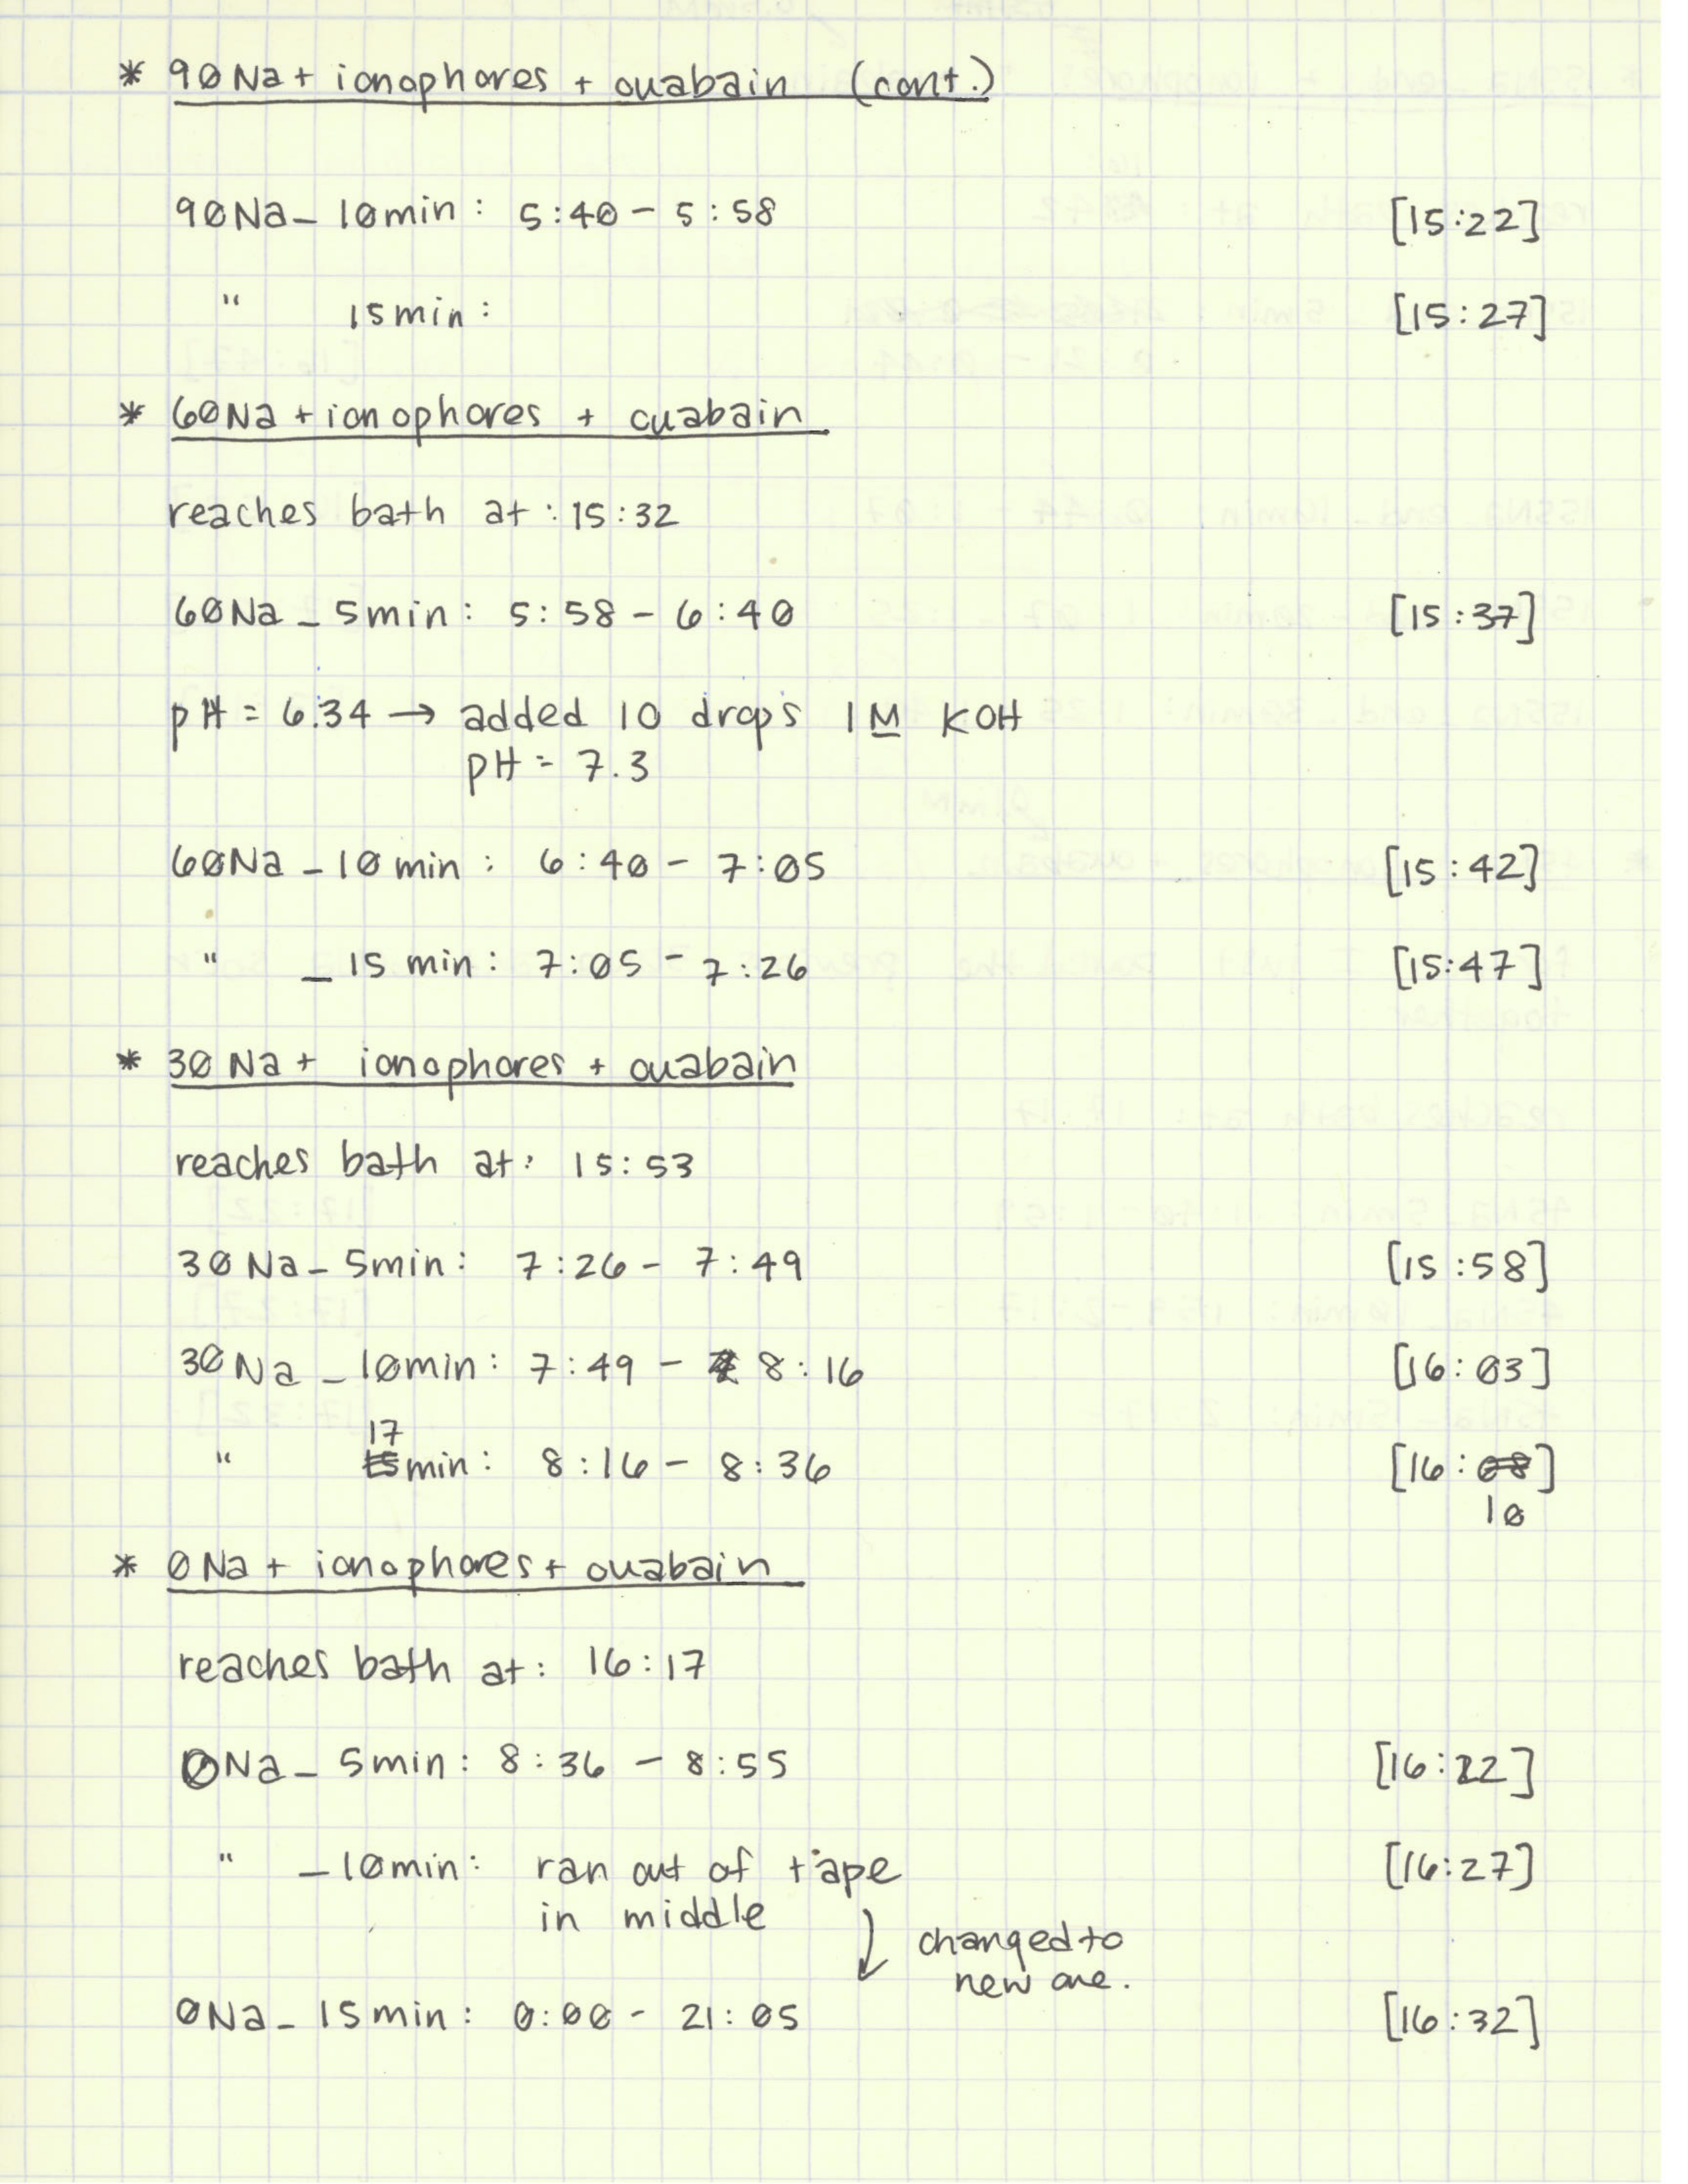 * 90Na + ionophores + ouabain (cont.)
90Na_ 10min: 5:40 - 5:58 [15:22]
" 15min: [15:27]
* 60Na + ionophores + ouabain
reaches bath at: 15:32
60Na_ 5min: 5:58 - 6:40 [15:37]
pH = 6.34 → added 10 drops 1M KOH
pH = 7.3
60Na_10min: 6:40 - 7:05 [15:42]
" _15 min: 7:05 - 7:26 [15:47]
* 30Na + ionophores + ouabain
reaches bath at: 15:53
30Na_ 5min: 7:26 - 7:49 [15:58]
30Na_10min: 7:49 - 8:16 [16:03]
17
" 15min: 8:16 - 8:36 [16:08]
10
* 0Na + ionophores + ouabain
reaches bath at: 16:17
0Na_ 5min: 8:36 - 8:55 [16:22]
" _10min: ran out of tape [16:27]
in middle
changed to
new one.
0Na_ 15min: 0:00 - 21:05 [16:32]